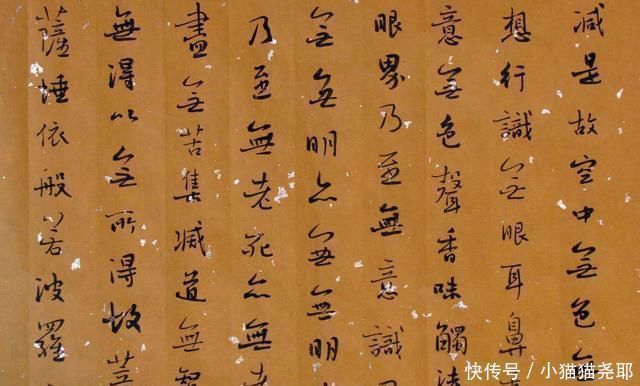 减是故空中無色無
想行識無眼耳鼻
意無色聲香味觸法
眼界乃至無意識
無無明亦無無明
乃至無老死亦無老
盡無苦集減道無智
無得以無所得故菩
薩埵依般若波羅
快传号/小猫猫尧耶